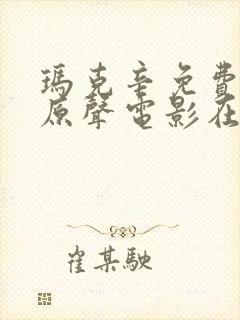 瑪克辛免費
原聲電影在
崔某駛